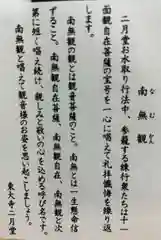 南無観
なむかん
二月堂お水取り行法中、参籠する練行衆たちは十一
面観自在菩薩の宝号を一心に唱えて礼拝懺悔を繰り返
します。
南無観の観とは観音のこと。南無とは一生懸命信
ずること。南無観自在菩薩、南無観自在、南無観と次
第に短く唱え続け、親しみと敬いの心を込める呼び名です。
南無観と唱えて観音様のお姿を思い起こしましょう。
東大寺二月堂